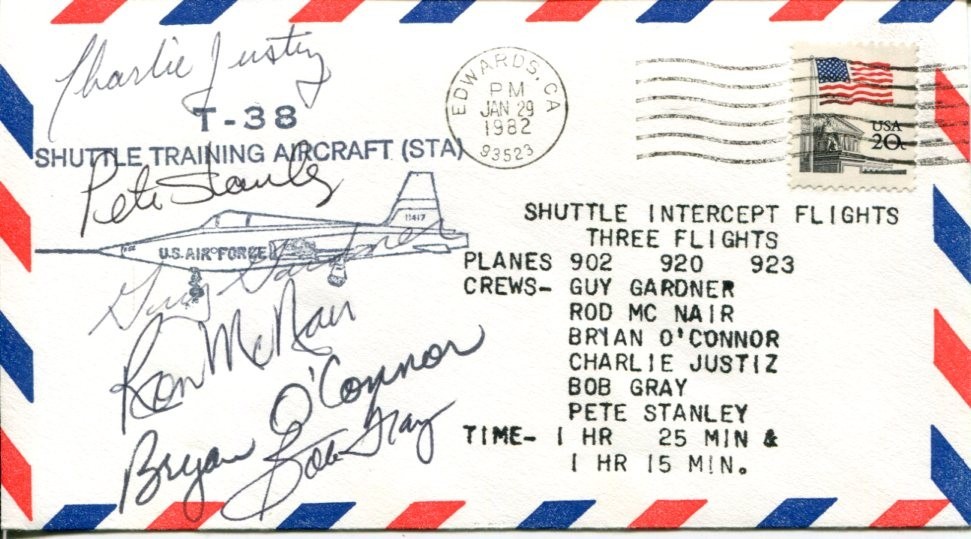 Charlie Justiz
T-38
SHUTTLE TRAINING AIRCRAFT (STA)
Pete Stanley
11417
U.S. AIR FORCE
Guy Gardner
Ron McNair
Bryan O'Connor
Bob Gray
EDWARDS, CA
PM
JAN 29
1982
93523
USA
20c
SHUTTLE INTERCEPT FLIGHTS
THREE FLIGHTS
PLANES 902 920 923
CREWS- GUY GARDNER
ROD MC NAIR
BRYAN O'CONNOR
CHARLIE JUSTIZ
BOB GRAY
PETE STANLEY
TIME- 1 HR 25 MIN &
1 HR 15 MIN.